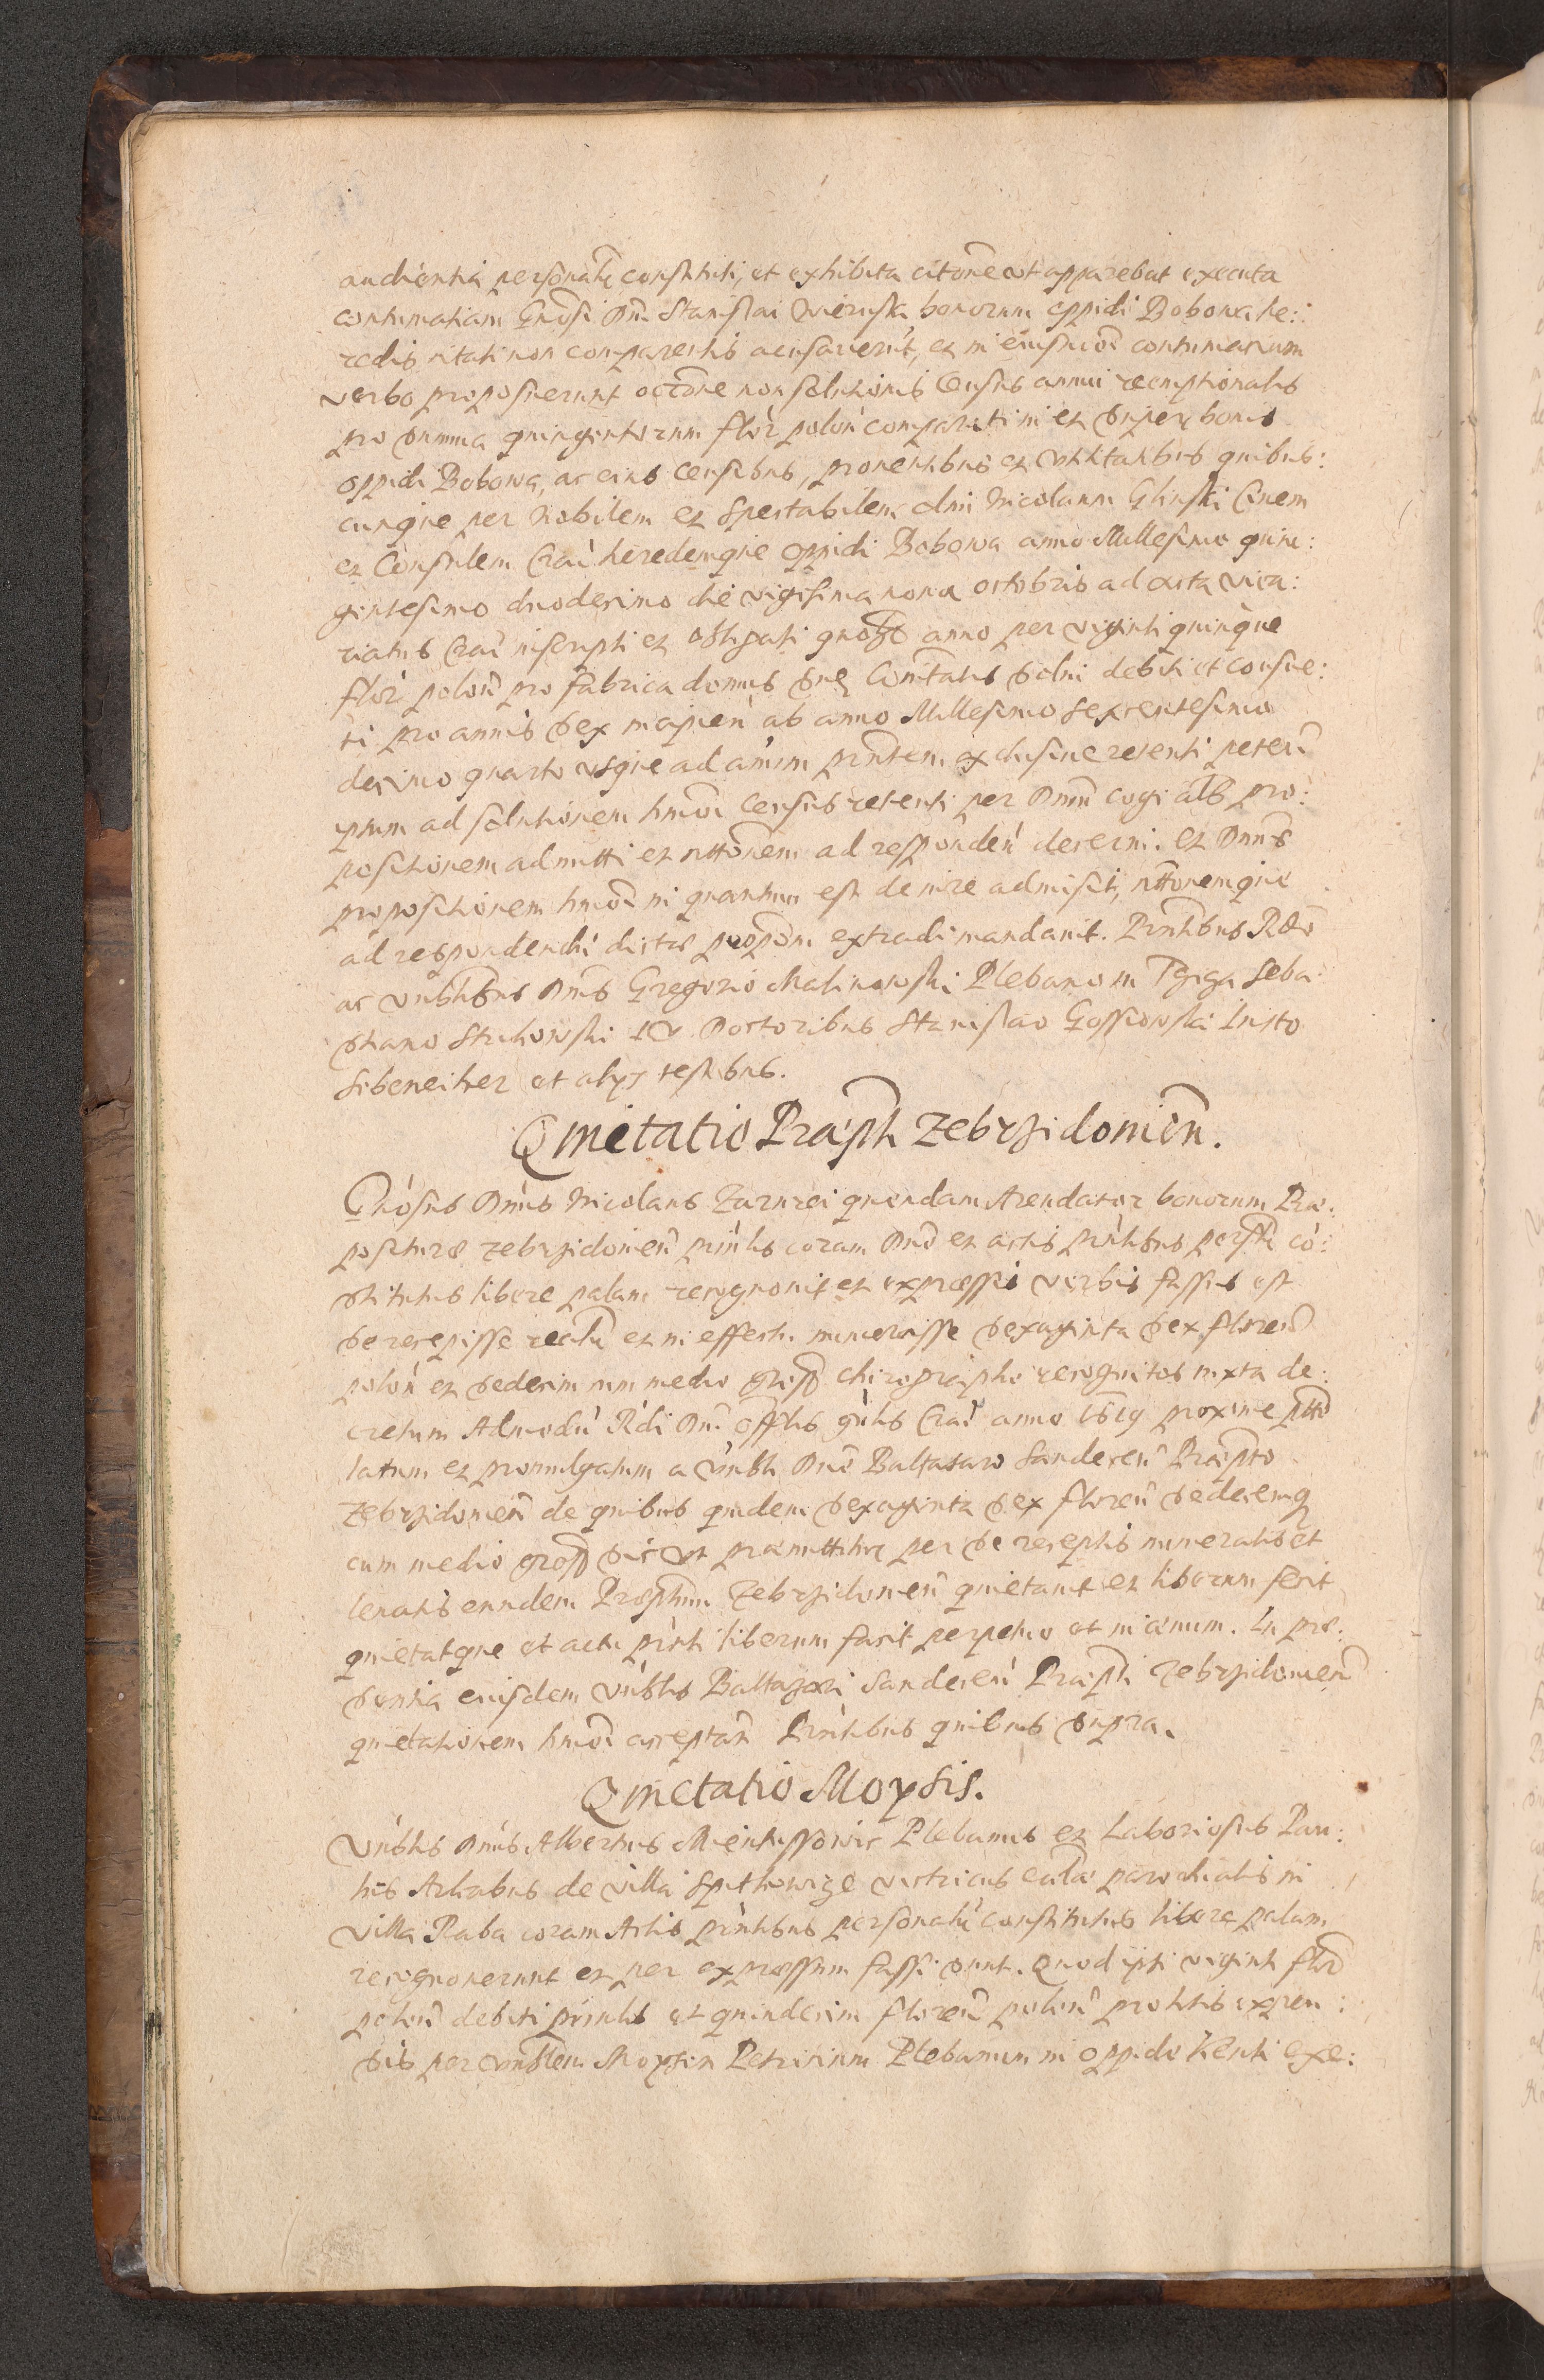 audientia personalr constituti, et exhibita citatne ut apparebat executa
contumatiam Gnosi Dni Stanislai Wieruska bonorum oppidi Bobowa he:
redis citati non comparentis acusaverut, et in eiusmodi contumatiam
verbo proposuerunt octone non solutionis Census annui reemptionalis
pro summa quingentorum flor polon comparati in et super bonis
oppidi Bobowa, ac eius censibus, proventibus et utilitatibus quibus:
cunque per Nobilem et Spectabilem dnu Nicolaum Glinski Civem
et Consulem Crac heredemque oppidi Bobowa anno Millesimo quin:
gentesimo duodecimo die vigesima nona octobris ad acta vica:
riatus Crac inscripti et obligati quolt anno per viginti quinque
flor polon pro fabrica domus suę Comtatis solui debiti et consue:
ti pro annis sex incipien ab anno Millesimo Sexcentesimo
decimo quarto usque ad annum pntem exclusive retenti peten
ipsum ad solutionem hmoi census retenti per Dnum cogi als pro:
positionem admitti et rttonem ad responden decerni. Et Dnus
propositionem hmoi in quantum est de iure admisit, rttonemque
ad respondendu dictæ propom extradi mandavit. Pntibus Rdo
ac vnblibus Dnis Gregorio Malinowski Plebano in Tgiga Seba
stiano Stuchowski IV Doctoribus Stanislao Gossiowski Iusto
Sibeneiher et alijs testibus.
Quietatio Præpti Zebrzidovien.
Gnosus Dnus Nicolaus Zarnrei quondam Arendator bonorum Præ:
posituræ zebrzidovien pntis coram Dno et actis pntibus persltr co:
stitutus libere palam recognovit et expressis verbis fassus est
se recepisse realtr et in effectu numerasse sexaginta sex floren
polon et sedecim cum medio gross chirographo recognitos iuxta de:
cretum Admodu Rdi Dni Offlis gnlis Crac anno 1619 proxime ptto
latum et promulgatum a Vnbli Dno Baltasaro Sandecen Præpto
Zebrzidovien de quibus quidem sexaginta sex floren sedecemq
cum medio gross sic ut præmittitur per se receptis numeratis et
levatis eundem Præptum Zebrzidovien quietavit et liberum fecit
quietatque et actu pnti liberum facit perpetuo et in ævum. In præ:
sentia eiusdem Vnblis Baltazari Sandecen Præpti Zebrzidovien
quietationem hmoi acceptan Pntibus quibus supra.
Quietatio Moysis.
Vnblis Dnus Albertus Mientussowic Plebanus et Laboriosus Pau:
lus Achabus de villa Spitkowize vitricus ecclæ parochialis in
villa Raba coram Actis pntibus personaltr constitutus libere palam
recognoverunt et per expressum fassi sunt. Quod ipsi viginti flor
polon debiti prinlis et quindecim floren polon pro litis expen:
sis per vnblem Moysen Petricium Plebanum in oppido Kenti exe: